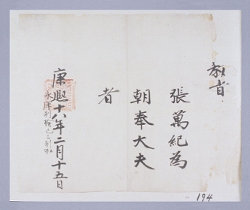 敎旨
張萬紀爲
朝奉大夫
者
康熙十六年二月十五日
194